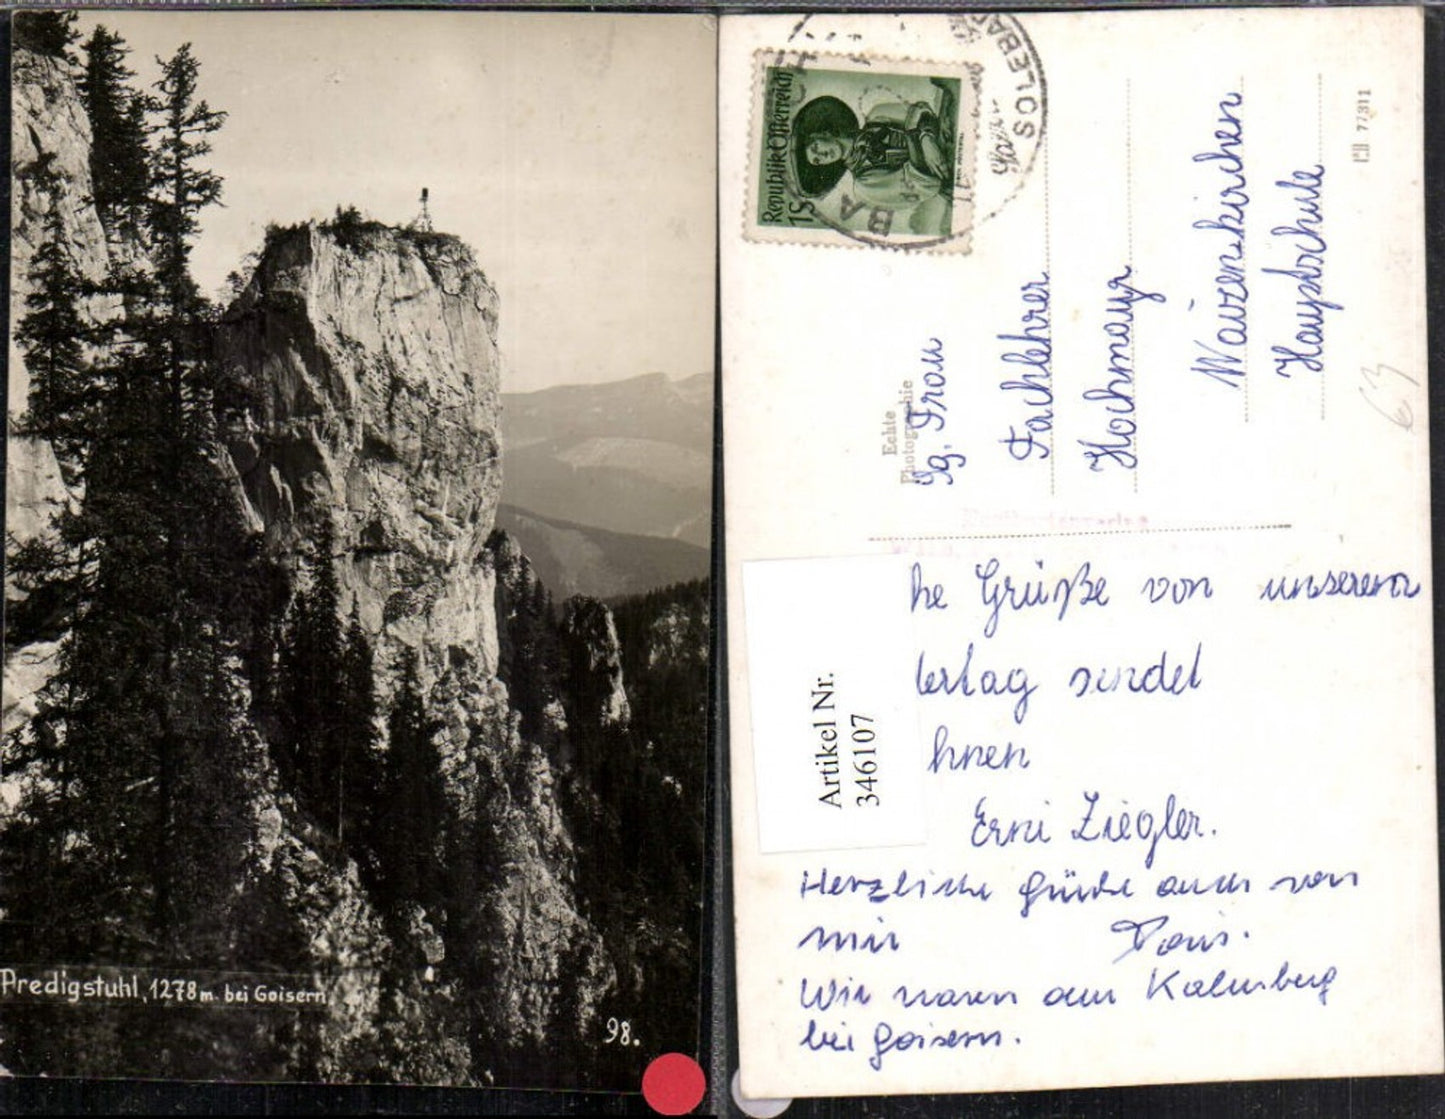 Predigstuhl, 1278 m. bei Goisern
98.
Republik Österreich
1 S
BA
Echte
Photographie
77311
Sg. Frau
Fachlehrer
Hochmayr
Waizenkirchen
Hauptschule
63
Artikel Nr.
346107
he Grüße von unserem
ertag sendet
hnen
Erni Ziegler.
Herzliche Grüße auch von
mir
Wir waren am Kalmberg
bei Goisern.